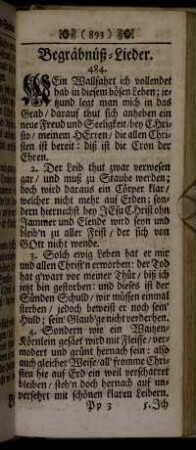 (893)
Begräbnüß-Lieder.
484.
MEin Wallfahrt ich vollendet
hab in diesem bösen Leben; je-
tzund legt man mich in das
Grab / darauf thut sich anheben ein
neue Freud und Seeligkeit bey CHri-
sto / meinem HErren / die allen Chri-
sten ist bereit : diß ist die Cron der
Ehren.
2. Der Leid thut zwar verwesen
gar / und muß zu Staube werden;
doch wird daraus ein Cörper klar /
welcher nicht mehr auf Erden; son-
dern hiernechst bey JEsu Christ ohn
Jammer und Elende wird seyn und
bleib'n zu aller Frist / der sich von
GOtt nicht wende.
3. Solch ewig Leben hat er mir
und allen Christ'n erworben : der Tod
hat g'wart vor meiner Thür / biß ich
jetzt bin gestorben : und dieses ist der
Sünden Schuld / wir müssen einmal
sterben / jedoch beweist er noch sein'
Huld; sein' Gläub'ge nicht verderben.
4. Sondern wie ein Waitzen-
Körnlein gesäet wird mit Fleisse / ver-
modert und grünt hernach fein : also
auch gleicher Weise / all' fromme Chri-
sten hie auf Erd ein weil verscharret
bleiben / steh'n doch hernach auf un-
versehrt mit schönen klaren Leibern.
Pp 3
5. Ich